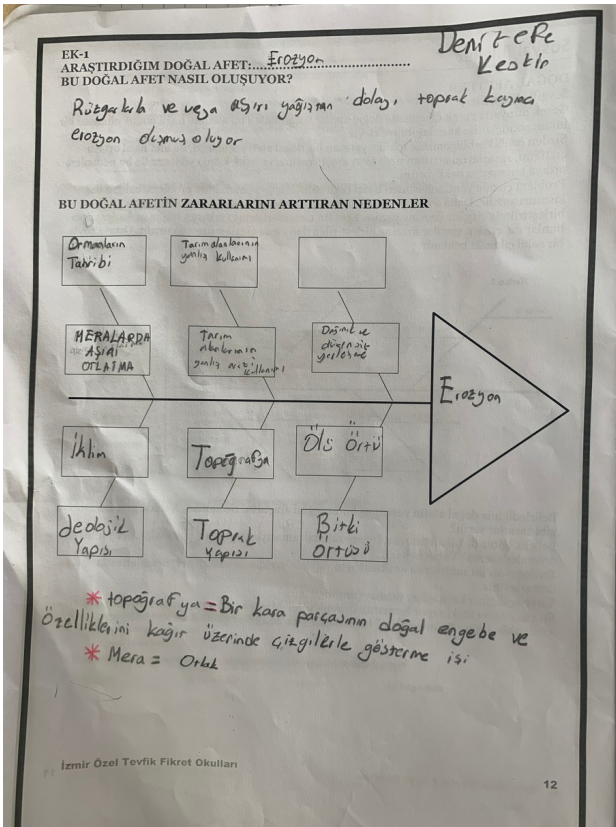 Deniz efe
Keskin
EK-1
ARAŞTIRDIĞIM DOĞAL AFET:....Erozyon....................
BU DOĞAL AFET NASIL OLUŞUYOR?
Rüzgarlarla ve veya aşırı yağıştan dolayı toprak kayması
erozyon oluyor
BU DOĞAL AFETİN ZARARLARINI ARTTIRAN NEDENLER
Ormanların
Tahribi
Tarım alanlarının
yanlış kullanımı
MERALARDA
AŞIRI
OTLATMA
Tarım
alanlarının
yanlış arazi
kullanımı
Dağınık ve
düzensiz
yerleşme
Erozyon
İklim
Topoğrafya
Ölü Örtü
Jeolojik
Yapısı
Toprak
yapısı
Bitki
Örtüsü
* topoğrafya = Bir kara parçasının doğal engebe ve
özelliklerini kağıt üzerinde çizgilerle gösterme işi
* Mera = Otlak
İzmir Özel Tevfik Fikret Okulları
12